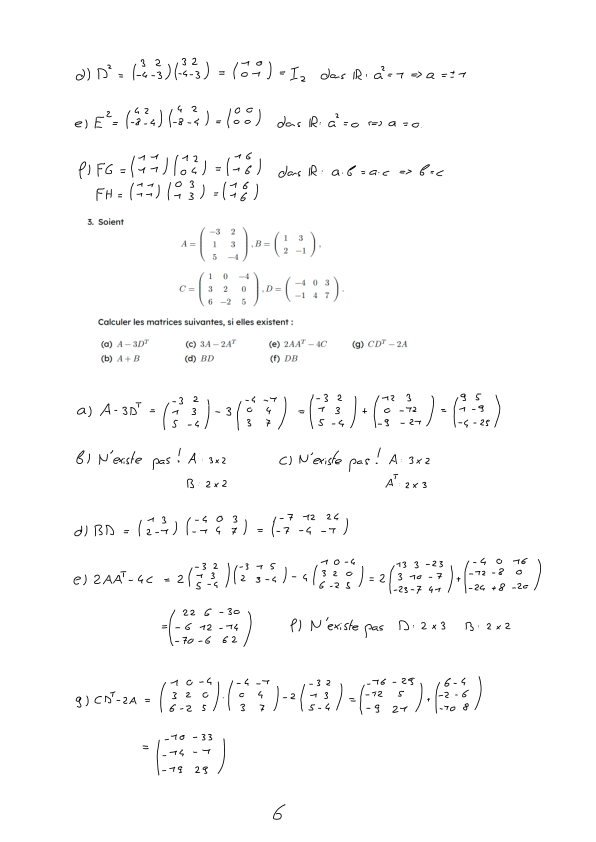 d) D² = (3 2 / -4 -3)(3 2 / -4 -3) = (1 0 / 0 1) = I₂ dans ℝ: a² = 1 ⇔ a = ±1
e) E² = (4 2 / -8 -4)(4 2 / -8 -4) = (0 0 / 0 0) dans ℝ: a² = 0 ⇔ a = 0
f) FG = (1 1 / 1 1)(1 2 / 0 4) = (1 6 / 1 6) dans ℝ: a·b = a·c ⇒ b = c
FH = (1 1 / 1 1)(0 3 / 1 3) = (1 6 / 1 6)
3. Soient
A = (-3 2 / 1 3 / 5 -4), B = (1 3 / 2 -1),
C = (1 0 -4 / 3 2 0 / 6 -2 5), D = (-4 0 3 / -1 4 7).
Calculer les matrices suivantes, si elles existent :
(a) A - 3Dᵀ (c) 3A - 2Aᵀ (e) 2AAᵀ - 4C (g) CDᵀ - 2A
(b) A + B (d) BD (f) DB
a) A - 3Dᵀ = (-3 2 / 1 3 / 5 -4) - 3(-4 -1 / 0 4 / 3 7) = (-3 2 / 1 3 / 5 -4) + (12 3 / 0 -12 / -9 -21) = (9 5 / 1 -9 / -4 -25)
b) N'existe pas ! A : 3x2 c) N'existe pas ! A : 3x2
B : 2x2 Aᵀ : 2x3
d) BD = (1 3 / 2 -1)(-4 0 3 / -1 4 7) = (-7 12 24 / -7 -4 -1)
e) 2AAᵀ - 4C = 2(-3 2 / 1 3 / 5 -4)(-3 1 5 / 2 3 -4) - 4(1 0 -4 / 3 2 0 / 6 -2 5) = 2(13 3 -23 / 3 10 -7 / -23 -7 41) + (-4 0 16 / -12 -8 0 / -24 +8 -20)
= (22 6 -30 / -6 12 -14 / -70 -6 62) f) N'existe pas D : 2x3 B : 2x2
g) CDᵀ - 2A = (1 0 -4 / 3 2 0 / 6 -2 5)·(-4 -1 / 0 4 / 3 7) - 2(-3 2 / 1 3 / 5 -4) = (-16 -29 / -12 5 / -9 21) + (6 -4 / -2 -6 / -10 8)
= (-10 -33 / -14 -1 / -19 29)
6